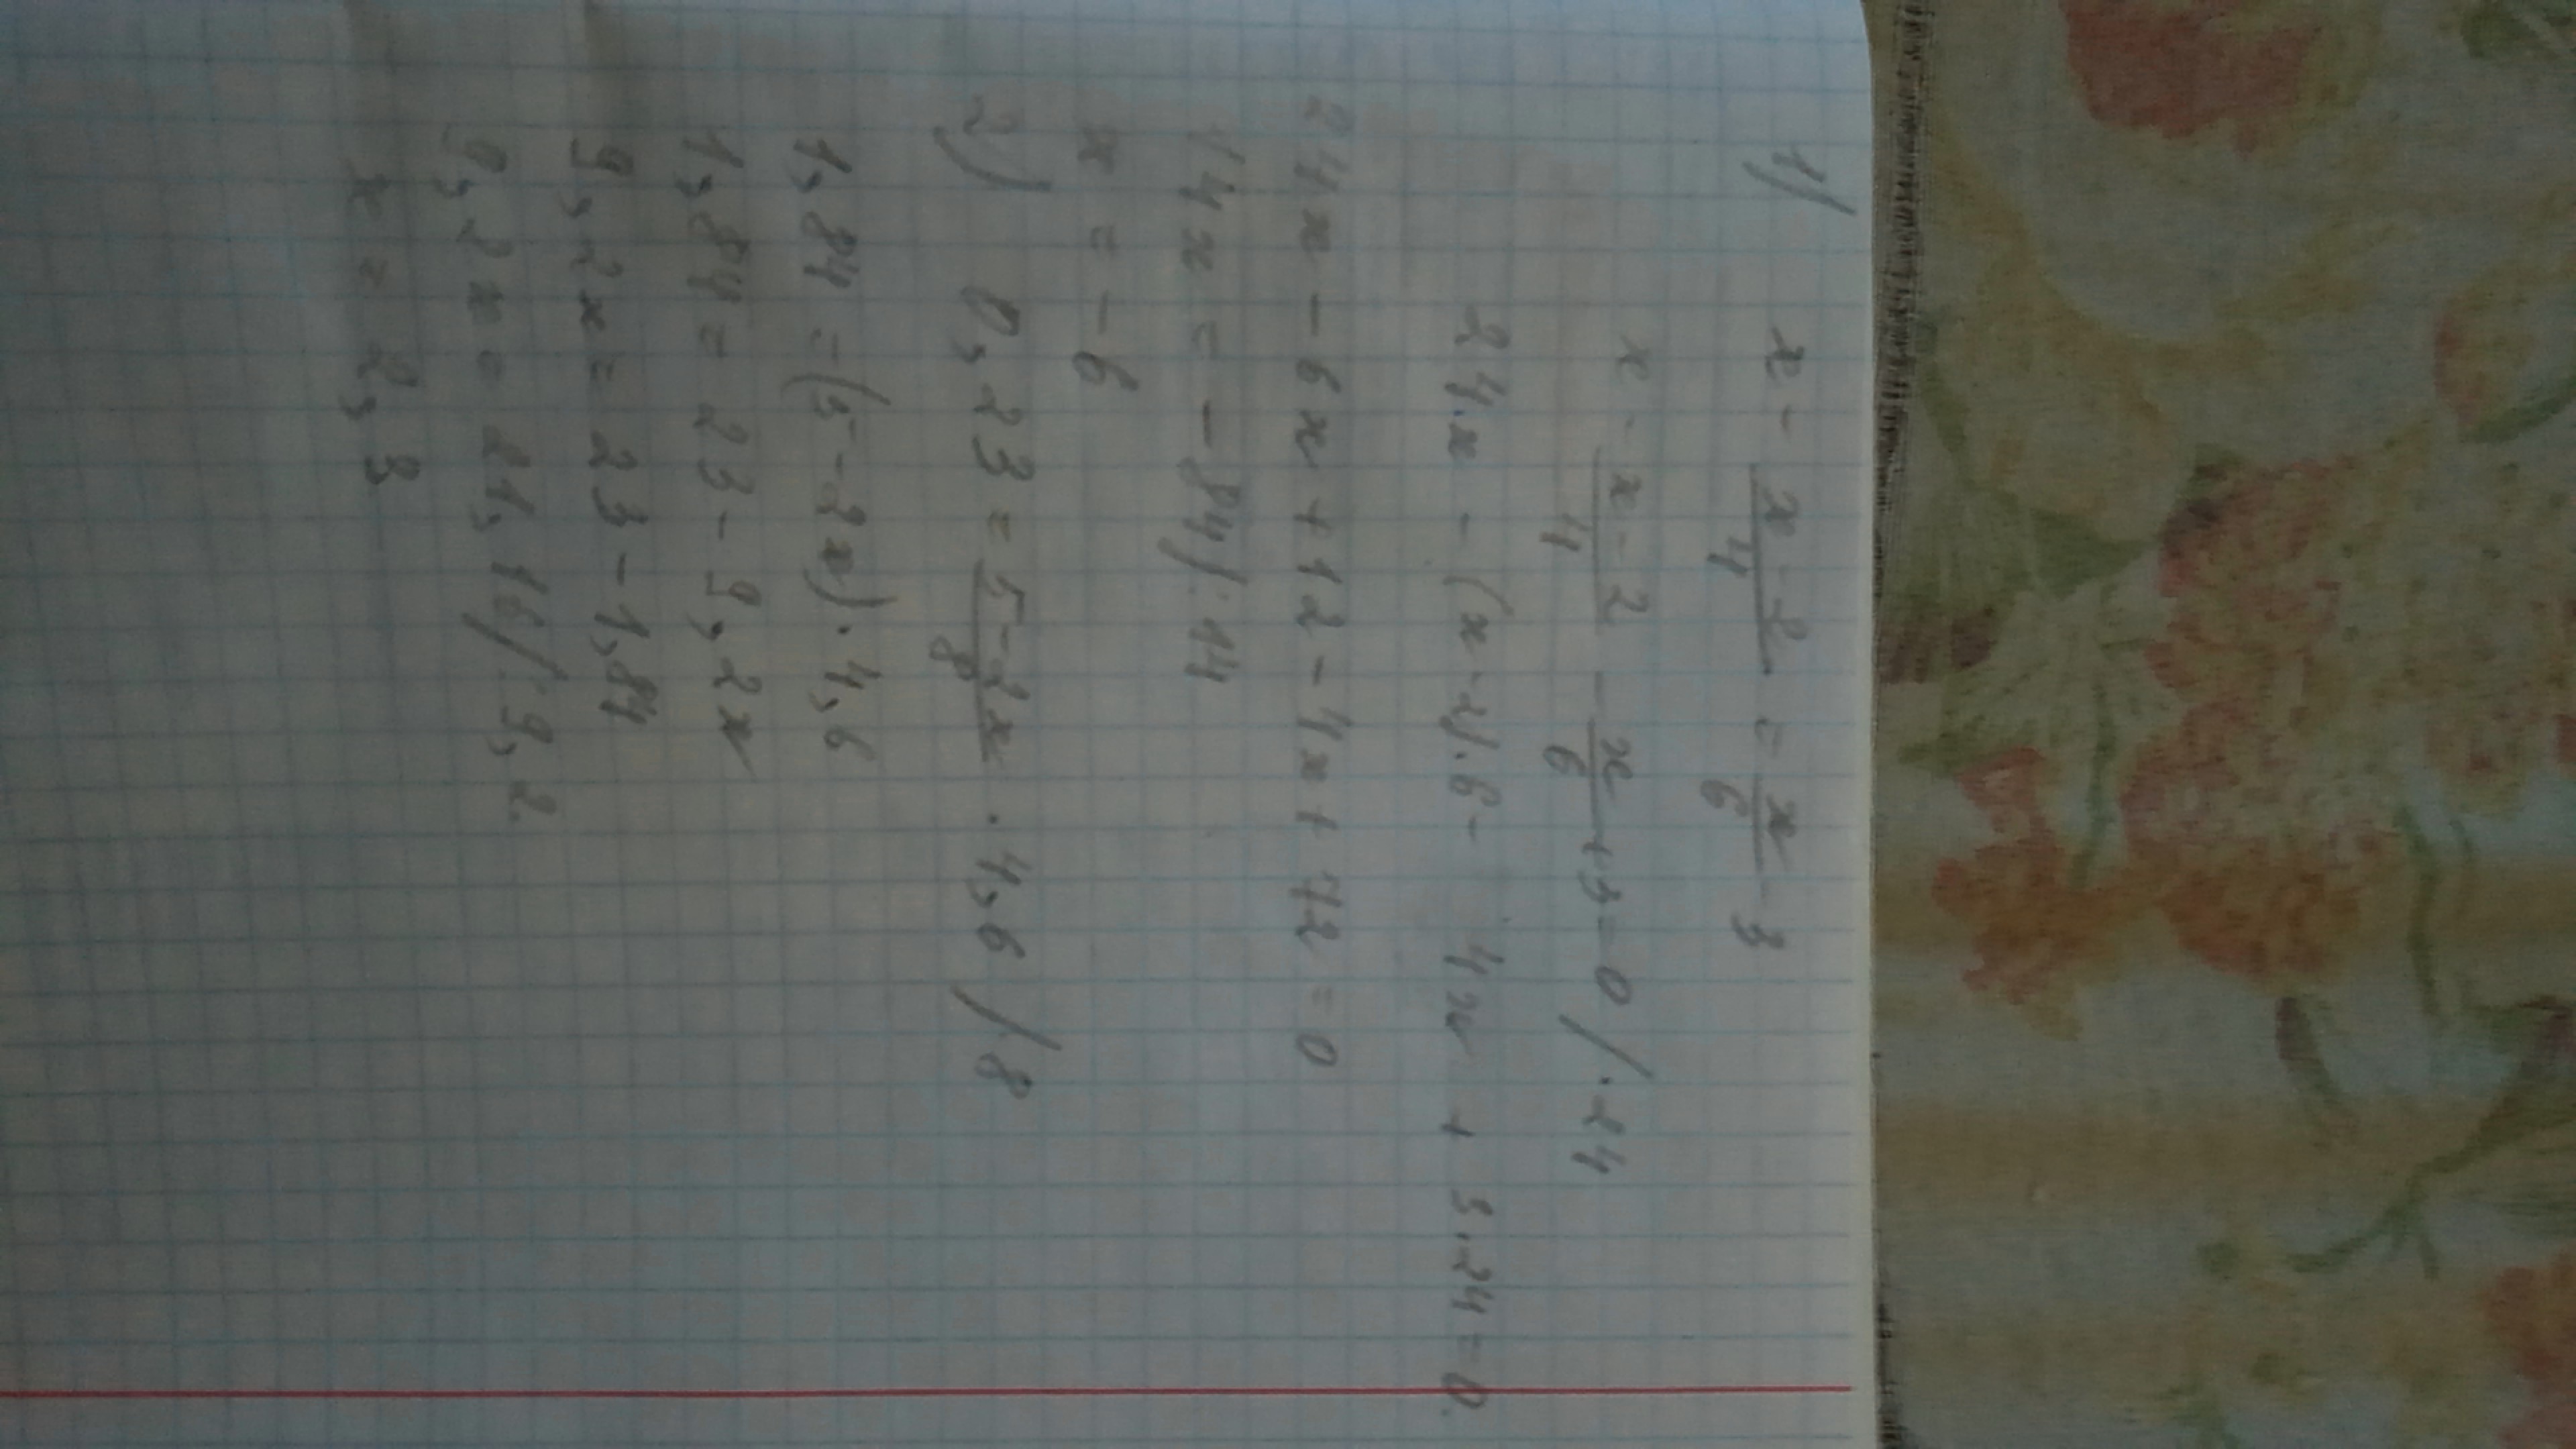 1) x - (x-2)/4 = x/6 - 3
x - (x-2)/4 - x/6 + 3 = 0 / · 24
24x - (x-2)·6 - 4x + 3·24 = 0.
24x - 6x + 12 - 4x + 72 = 0
14x = -84/:14
x = -6
2) 0,23 = (5-2x)/8 · 4,6 /·8
1,84 = (5-2x)·4,6
1,84 = 23 - 9,2x
9,2x = 23 - 1,84
9,2x = 21,16/:9,2.
x = 2,3